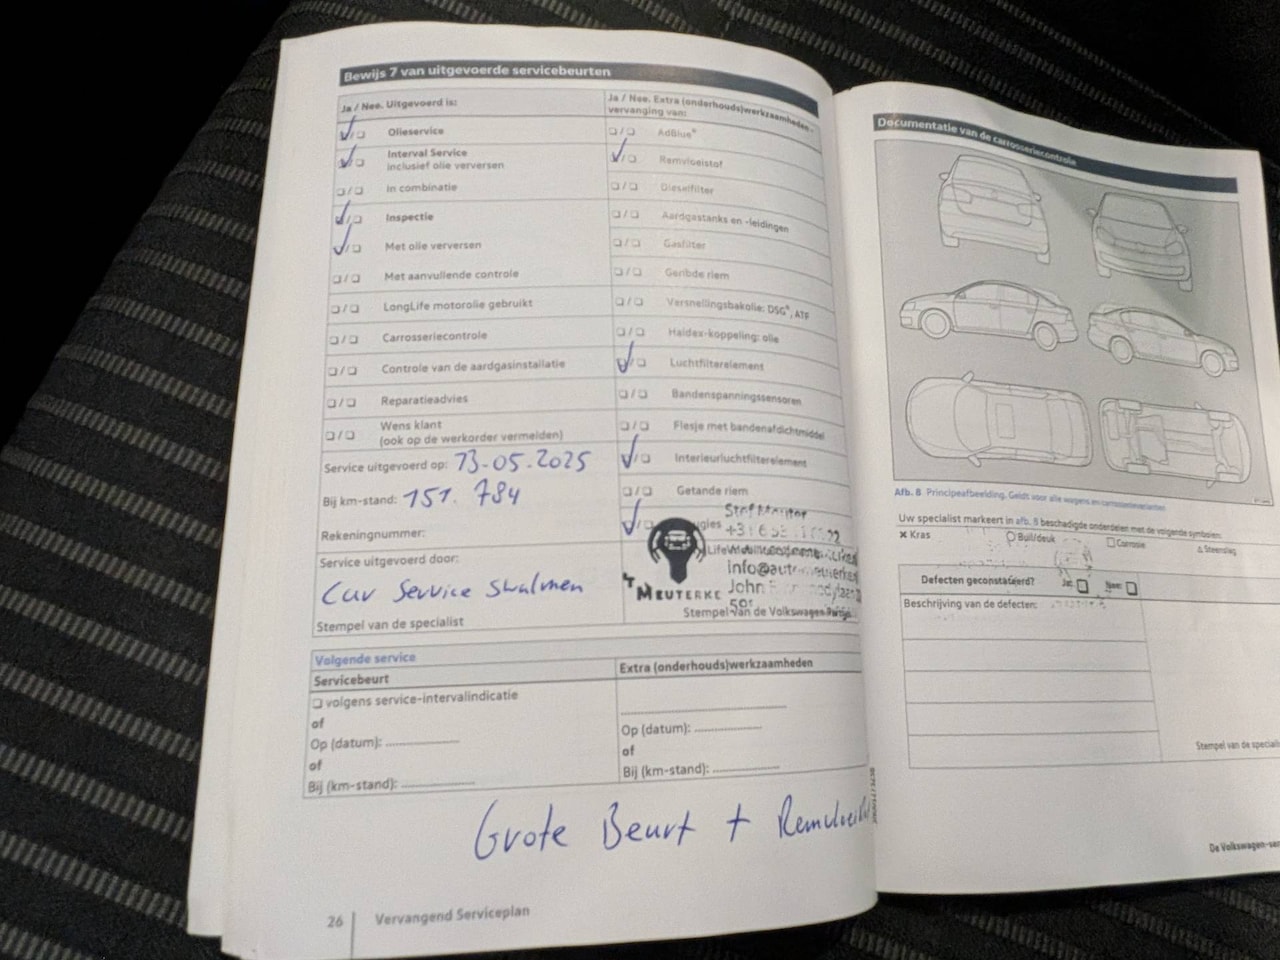 Bewijs 7 van uitgevoerde servicebeurten
Ja / Nee. Uitgevoerd is:
Olieservice
Interval Service
inclusief olie verversen
In combinatie
Inspectie
Met olie verversen
Met aanvullende controle
LongLife motorolie gebruikt
Carrosseriecontrole
Controle van de aardgasinstallatie
Reparatieadvies
Wens klant
(ook op de werkorder vermelden)
Service uitgevoerd op: 13-05.2025
Bij km-stand: 151.784
Rekeningnummer:
Service uitgevoerd door:
Car Service Swalmen
Stempel van de specialist
Ja / Nee. Extra (onderhouds)werkzaamheden -
vervanging van:
AdBlue®
Remvloeistof
Dieselfilter
Aardgastanks en -leidingen
Gasfilter
Geribde riem
Versnellingsbakolie: DSG®, ATF
Haldex-koppeling: olie
Luchtfilterelement
Bandenspanningssensoren
Flesje met bandenafdichtmiddel
Interieurluchtfilterelement
Getande riem
MEUTERKE
John
59
Stempel van de Volkswagen-Partij
Volgende service
Servicebeurt
volgens service-intervalindicatie
of
Op (datum):
of
Bij (km-stand):
Extra (onderhouds)werkzaamheden
Op (datum):
of
Bij (km-stand):
Grote Beurt +
26
Vervangend Serviceplan
Documentatie van de carrosseriecontrole
Afb. 8 Principeafbeelding. Geldt voor alle wagens en carrosserievarianten
Uw specialist markeert in afb. 8 beschadigde onderdelen met de volgende symbolen:
Kras
Buil/deuk
Corrosie
Steenslag
Defecten geconstateerd? Ja: Nee:
Beschrijving van de defecten:
Stempel van de special
De Volkswagen-ser